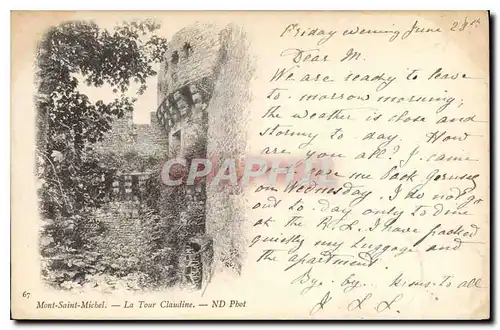 Friday evening June 28th
Dear M.
We are ready to leave
to-morrow morning;
the weather is close and
stormy to-day. How
are you all? I came
me back
on Wednesday. I do not go
out to-day only to dine
at the R. L. I have packed
quickly my luggage and
the apartment.
Bye. by. to all
67
Mont-Saint-Michel. — La Tour Claudine. — ND Phot
CPARAMA.COM